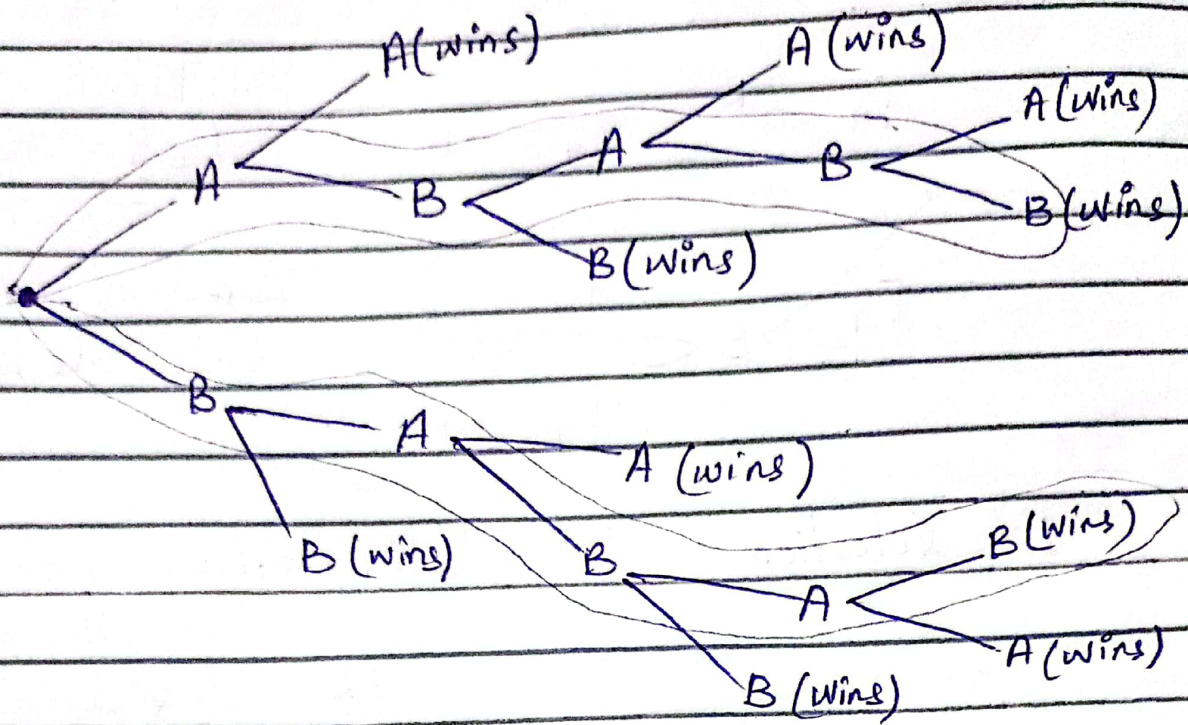 A (wins)
A (wins)
A (wins)
A
A
B
B
B (wins)
B (wins)
B
A
A (wins)
B (wins)
B (wins)
B
A
A (wins)
B (wins)